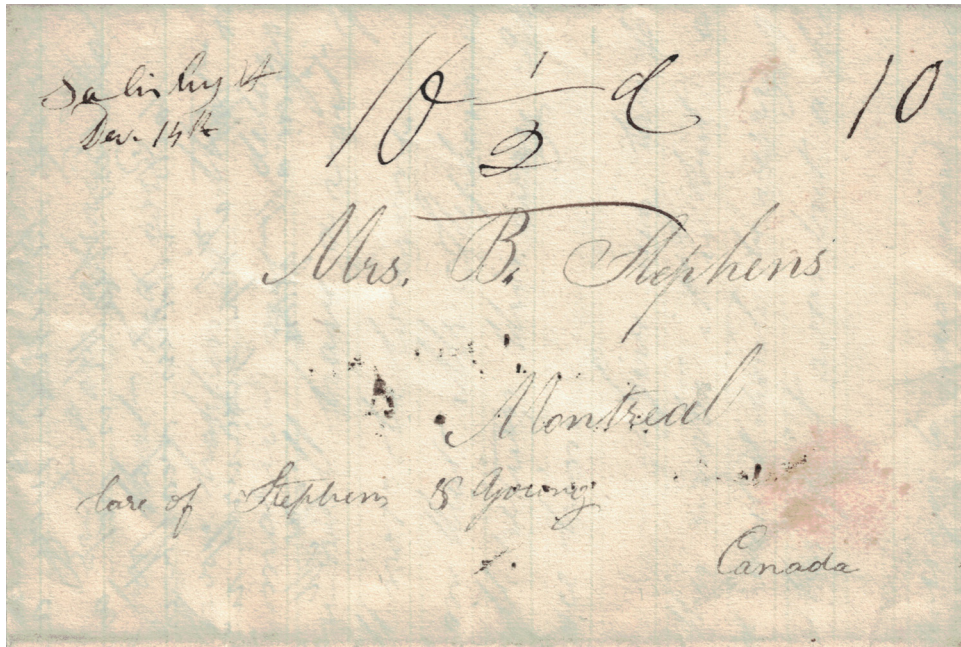 Salisbury Vt
Dec 14th
10 1/2 d
10
Mrs. B. Stephens
Montreal
Care of Stephens & Young
Canada